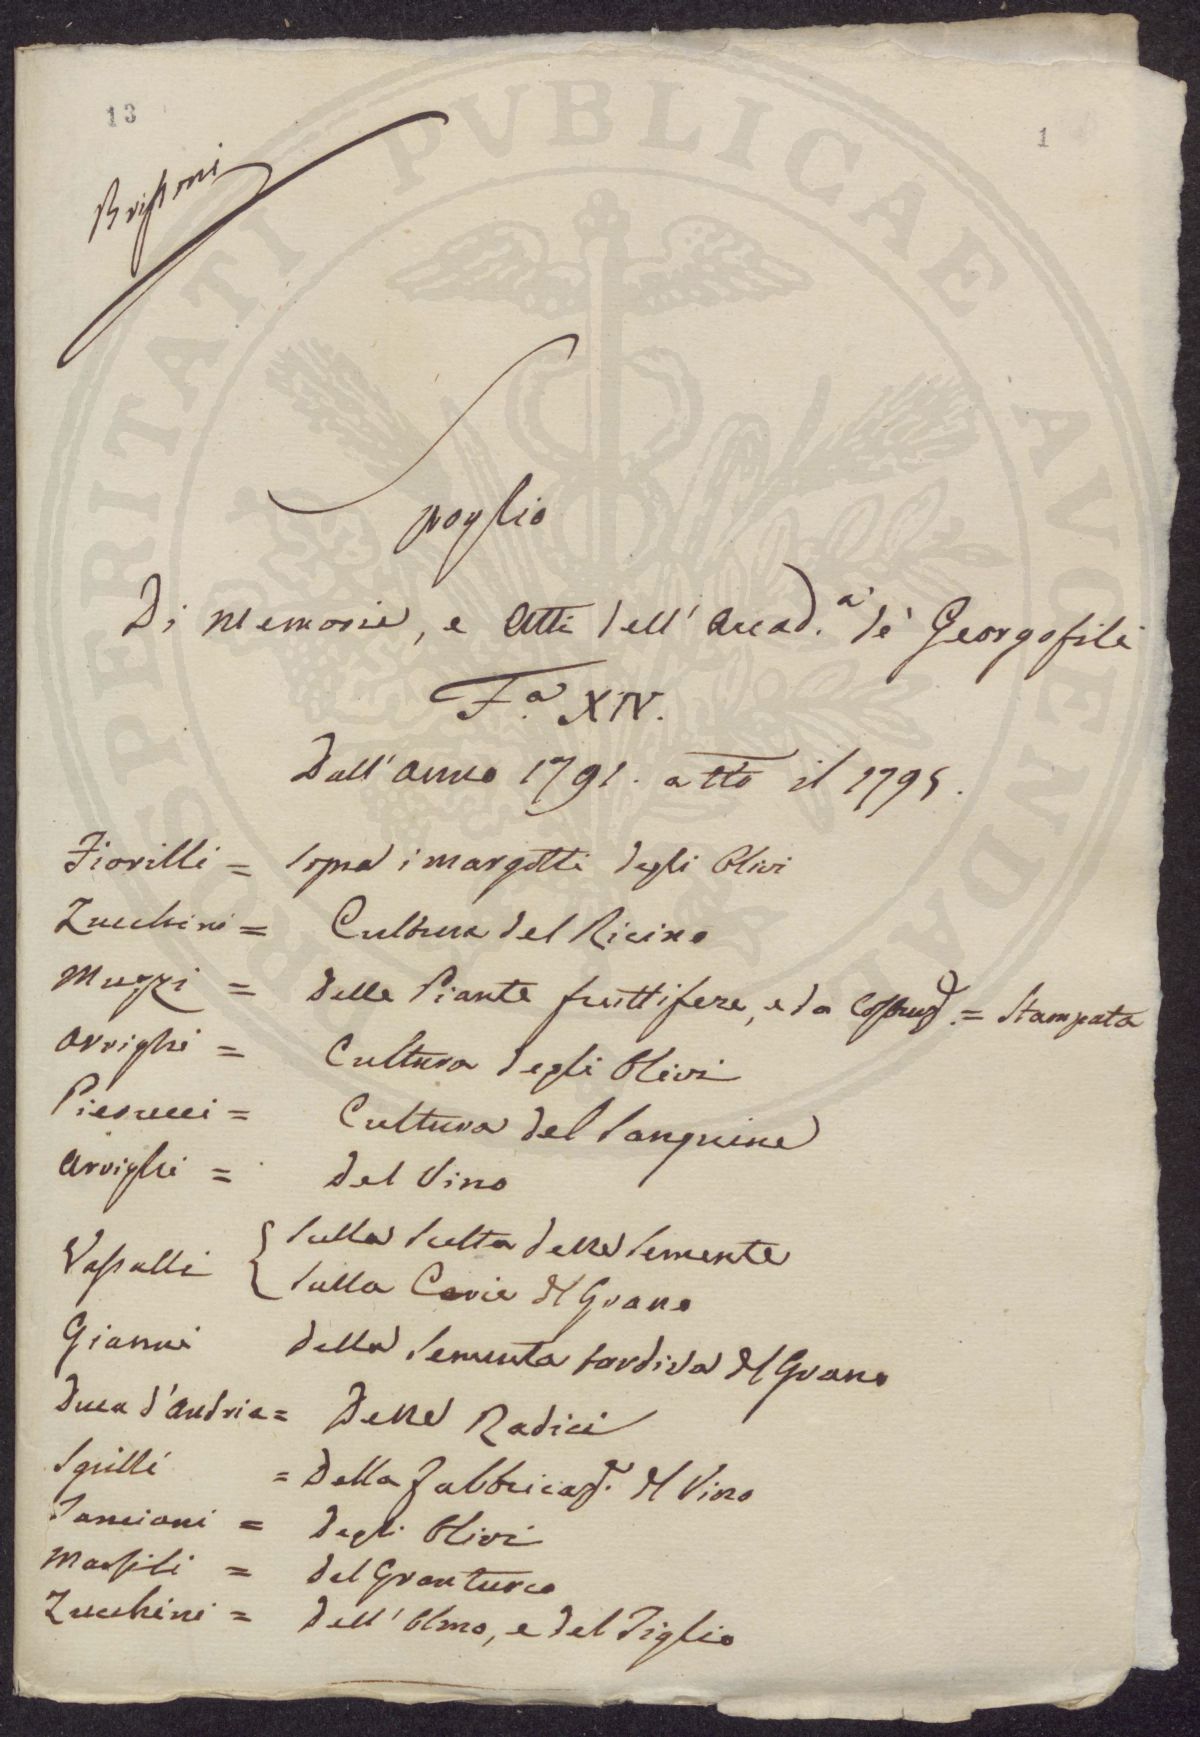 13
1
Spoglio
Di Memorie, e Atti dell' Accad.a de' Georgofili
F.a XIV.
Dall' anno 1791. a tto il 1795.
Fiorilli = Sopra i margotti degli Olivi
Zucchini = Cultura del Ricino
Muzzi = Delle Piante fruttifere, e da = Stampata
Arrighi = Cultura degli Olivi
Pierucci = Cultura del Sanguine
Arrighi = Del Vino
Vassalli { Sulla Scelta delle Semente
Sulla Carie dl Grano
Gianni Della Sementa tardiva dl Grano
Duca d'Andria = Delle Radici
Sgrilli = Della Fabbricaz. dl Vino
Sancioni = Degli Olivi
Marsili = Del Granturco
Zucchini = Dell' Olmo, e del Tiglio
PROSPERITATI PVBLICAE AVGENDAE